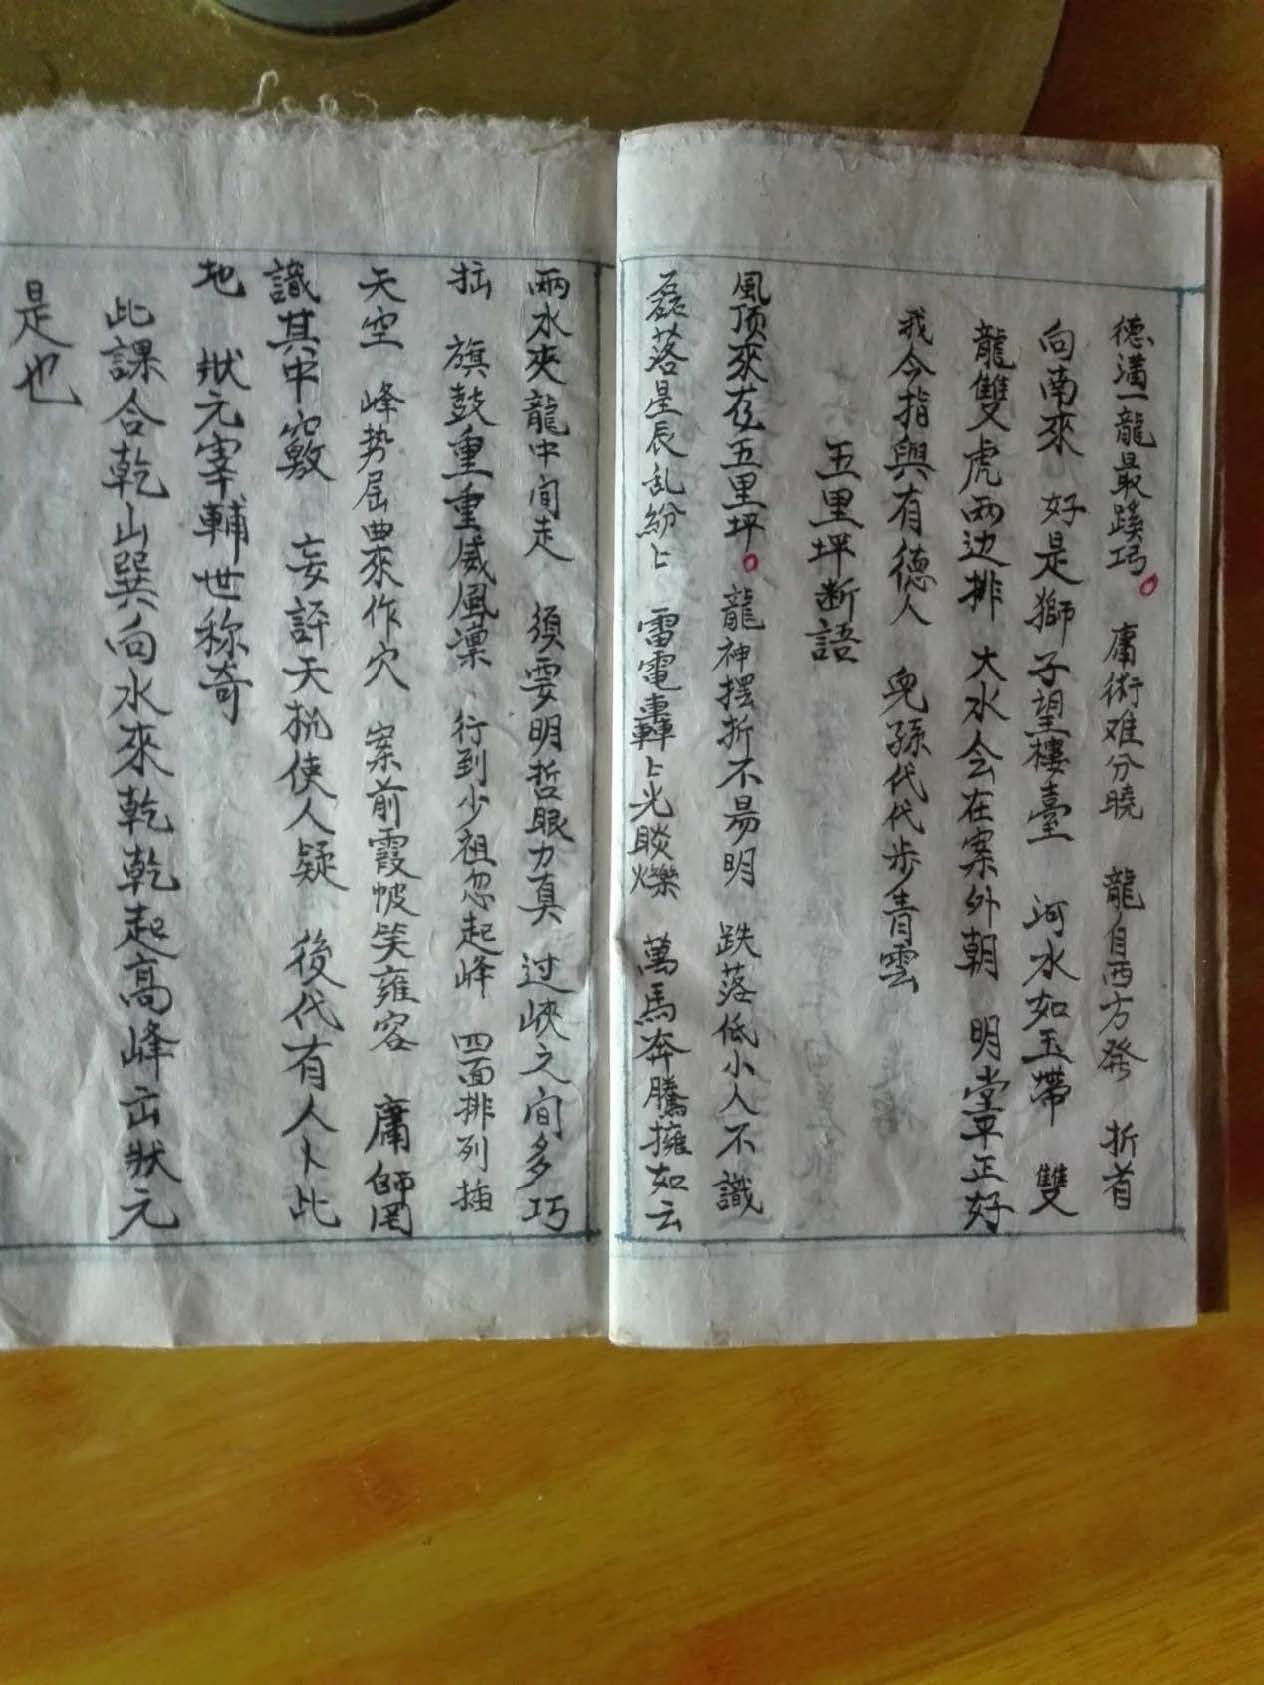 德溝一龍最蹊巧。 庸術难分曉 龍自西方發 折首
向南來 好是獅子望樓臺 河水如玉帶 雙
龍雙虎兩边排 大水会在案外朝 明堂平正好
我今指與有德人 兒孫代代步青雲
五里坪断語
風顶來在五里坪。龍神摆折不易明 跌落低小人不識
磊落星辰乱紛〻 雷電轟〻光睒爍 萬馬奔騰擁如云
兩水夾龍中间走 須要明哲眼力真 过峽之间多巧
拙 旗鼓重重威風凜 行到少祖忽起峰 四面排列插
天空 峰势屈曲來作穴 案前霞帔笑雍容 庸師罔
識其中竅 妄評天机使人疑 後代有人卜此
地 狀元宰輔世称奇
此課合乾山巽向水來乾乾起高峰出狀元
是也